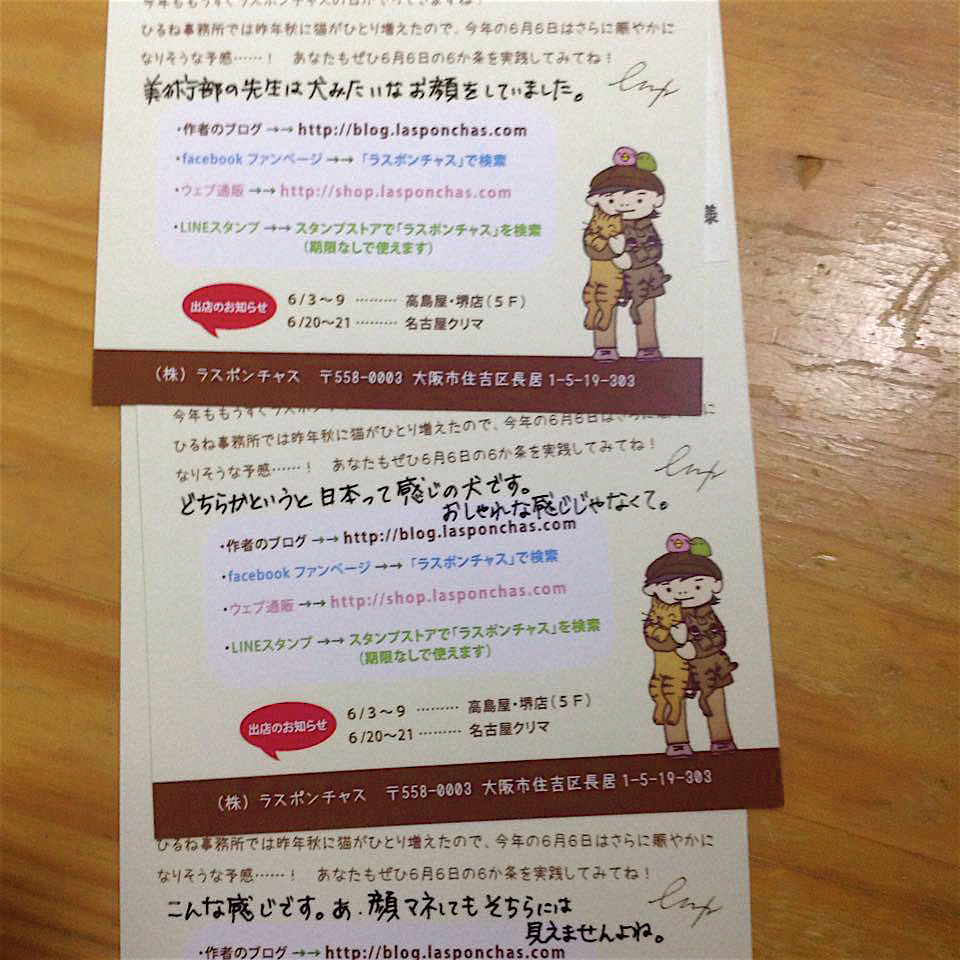 今年ももうすぐラスポンチャスの日がやってきますね！
ひるね事務所では昨年秋に猫がひとり増えたので、今年の6月6日はさらに賑やかに
なりそうな予感……！　あなたもぜひ6月6日の6か条を実践してみてね！
美術部の先生は犬みたいなお顔をしていました。
・作者のブログ→→ http://blog.lasponchas.com
・facebook ファンページ →→ 「ラスポンチャス」で検索
・ウェブ通販 →→ http://shop.lasponchas.com
・LINEスタンプ →→ スタンプストアで「ラスポンチャス」を検索
（期限なしで使えます）
出店のお知らせ
6/3～9 ……… 高島屋・堺店（5F）
6/20～21 ……… 名古屋クリマ
（株）ラスポンチャス　〒558-0003 大阪市住吉区長居1-5-19-303
今年ももうすぐラスポン
ひるね事務所では昨年秋に猫がひとり増えたので、今年の6月6日はさらに賑やかに
なりそうな予感……！　あなたもぜひ6月6日の6か条を実践してみてね！
どちらかというと日本って感じの犬です。
おしゃれな感じじゃなくて。
・作者のブログ→→ http://blog.lasponchas.com
・facebook ファンページ →→ 「ラスポンチャス」で検索
・ウェブ通販 →→ http://shop.lasponchas.com
・LINEスタンプ →→ スタンプストアで「ラスポンチャス」を検索
（期限なしで使えます）
出店のお知らせ
6/3～9 ……… 高島屋・堺店（5F）
6/20～21 ……… 名古屋クリマ
（株）ラスポンチャス　〒558-0003 大阪市住吉区長居1-5-19-303
ひるね事務所では昨年秋に猫がひとり増えたので、今年の6月6日はさらに賑やかに
なりそうな予感……！　あなたもぜひ6月6日の6か条を実践してみてね！
こんな感じです。あ、顔マネしてもそちらには
見えませんよね。
・作者のブログ→→ http://blog.lasponchas.com